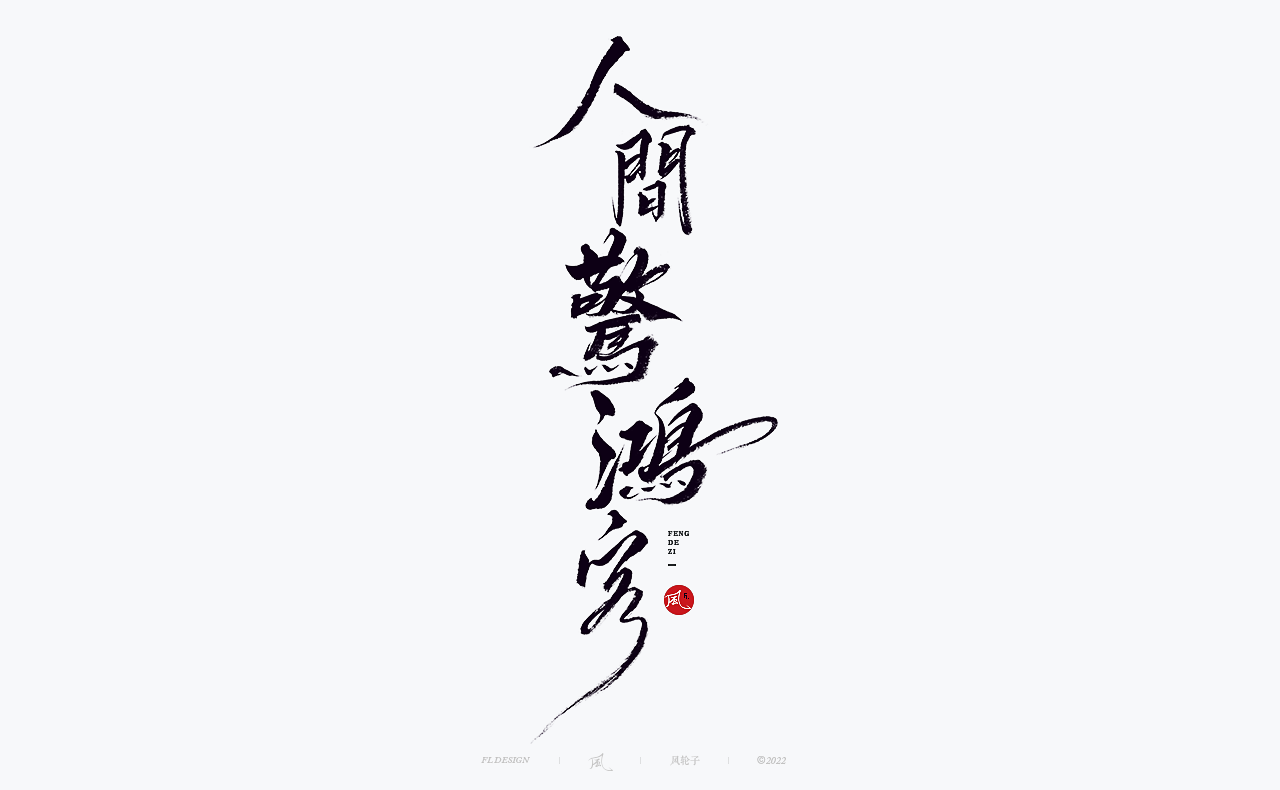 人間驚鴻客
FENG
DE
ZI
風
FL.DESIGN
風
风轮子
©2022